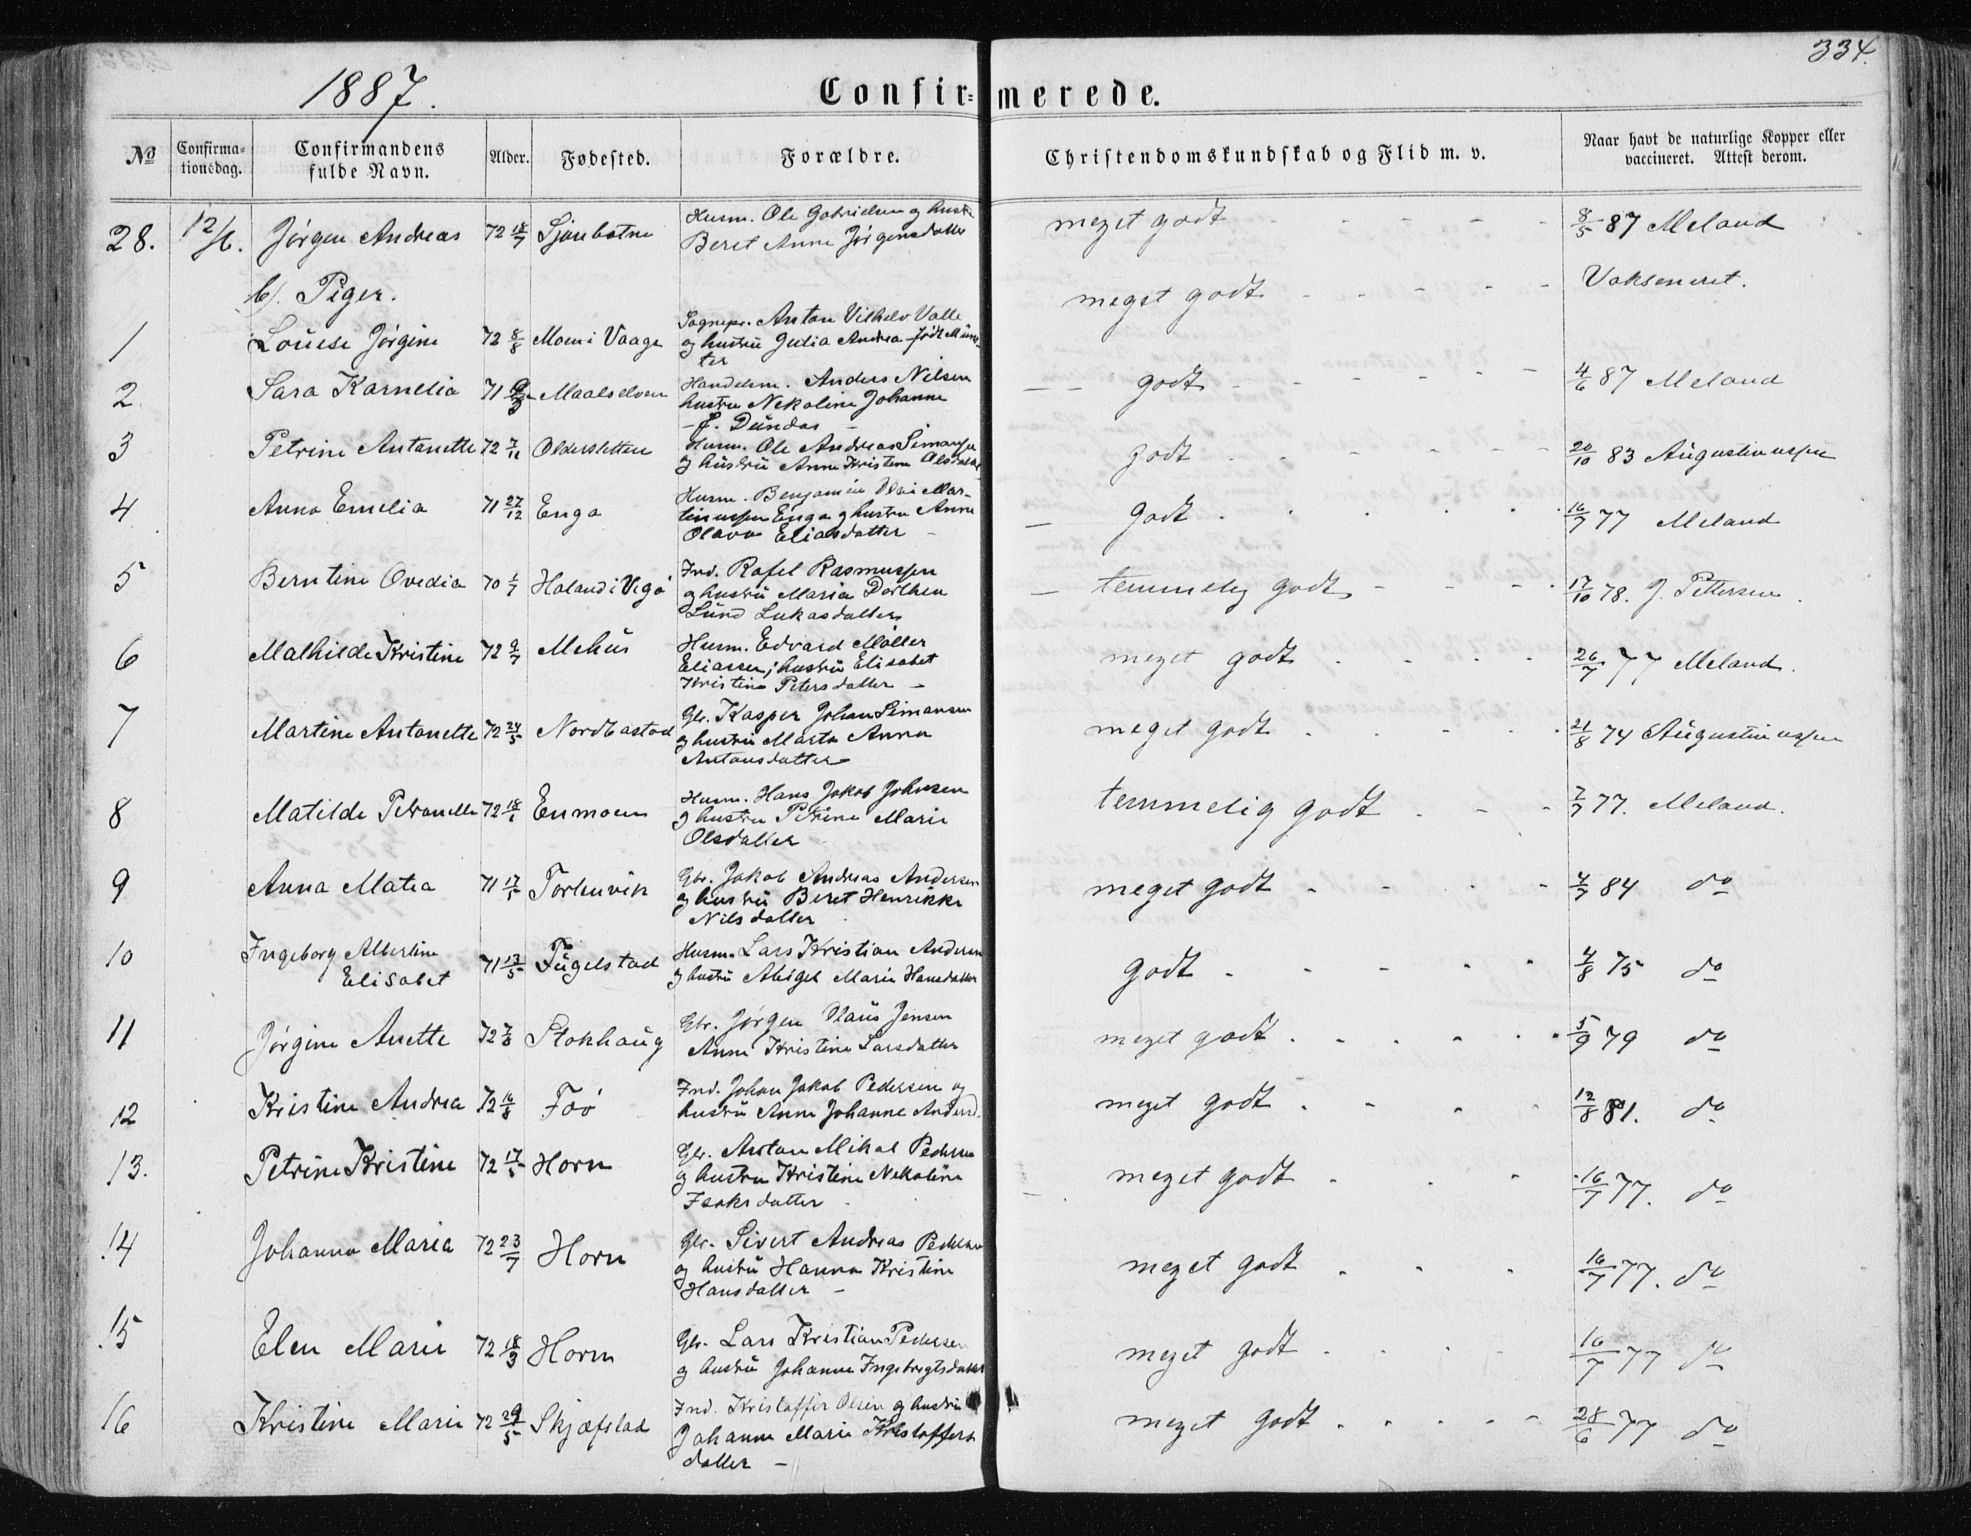 334.
1887.
Confirmerede.
No
Confirmationsdag.
Confirmandens fulde Navn.
Alder.
Fødested.
Forældre.
Christendomskundskab og Flid m. v.
Naar havt de naturlige Kopper eller vaccineret. Attest derom.
28. 12/6. Jørgen Andreas 72 18/7 Sjonbotne Husm. Ole Gabrielsen og hustru meget godt 8/5 87 Meland
Beret Anne Jørgensdatter
b). Piger.
1 Louise Jørgine 72 8/8 Moen i Vaage Sognepr. Anton Vilhelv Valle meget godt Vakseneret.
og hustru Julia Andrea født Müns-
ter
2. Sara Karnelia 71 Maalselven Handelsm. Anders Nilsen godt 4/6 87 Meland
hustru Nekoline Johanne
f. Dundas
3 Petrine Antonette 72 7/11 Oldersletten Husm. Ole Andreas Simonsen godt 20/10 83 Augustinussen
og hustru Anne Kristine Olsdatter
4 Anna Emelia 71 27/12 Enga Husm. Benjamin Olai Mar- godt 16/7 77 Meland
tinussen Enga og hustru Anne
Olava Eliasdatter
5 Berntine Ovedia 70 1/7 Haland i Vegø Ind. Rafel Rasmussen temmelig godt 17/10 78. J. Pettersen.
og hustru Maria Dorthea
Lund Lukasdatter
6 Mathilde Kristine 72 9/7 Mehus Husm. Edvard Møller meget godt 26/7 77 Meland.
Eliassen, hustru Elisabet
Kristine Petersdatter
7 Martine Antonette 72 24/5 Nordbastad Gbr. Kasper Johan Simonsen meget godt 21/8 74 Augustinussen
og hustru Marta Anna
Antonsdatter
8 Matilde Petronelle 72 18/1 Enmoen Husm. Hans Jakob Johnsen temmelig godt 7/7 77. Meland.
og hustru Petrine Marie
Olsdatter
9 Anna Matea 71 17/5 Forhuvik Gbr. Jakob Andreas Andersen meget godt 4/7 84 do
og hustru Beret Henrikke
Nilsdatter
10 Ingeborg Albertine 71 13/5 Fugelstad Husm. Lars Kristian Andersen godt 4/8 75 do
Elisabet og hustru Abigel Marie Hansdatter
11 Jørgine Anette 72 7/8 Stokhaug Gbr. Jørgen Olaus Jensen meget godt 5/9 79 do
Anne Kristine Larsdatter
12 Kristine Andrea 72 16/8 Foø Ind. Johan Jakob Pedersen og meget godt 12/8 81. do
hustru Anne Johanne Andersd.
13. Petrine Kristine 72 17/5 Horn Gbr. Anton Mikal Pedersen meget godt 16/7 77. do
og hustru Kristine Nekoline
Isaksdatter
14 Johanna Maria 72 23/7 Horn Gbr. Sivert Andreas Pedersen meget godt 16/7 77. do
og hustru Hanna Kristine
Hansdatter
15 Elen Marie 72 18/3 Horn Gbr. Lars Kristian Pedersen meget godt 16/7 77 do
og hustru Johanne Ingebrigtsdatter
16 Kristine Marie 72 29/5 Skjæfstad Ind. Kristoffer Olsen og hustru meget godt 28/6 77 do
Johanne Marie Kristoffers
datter